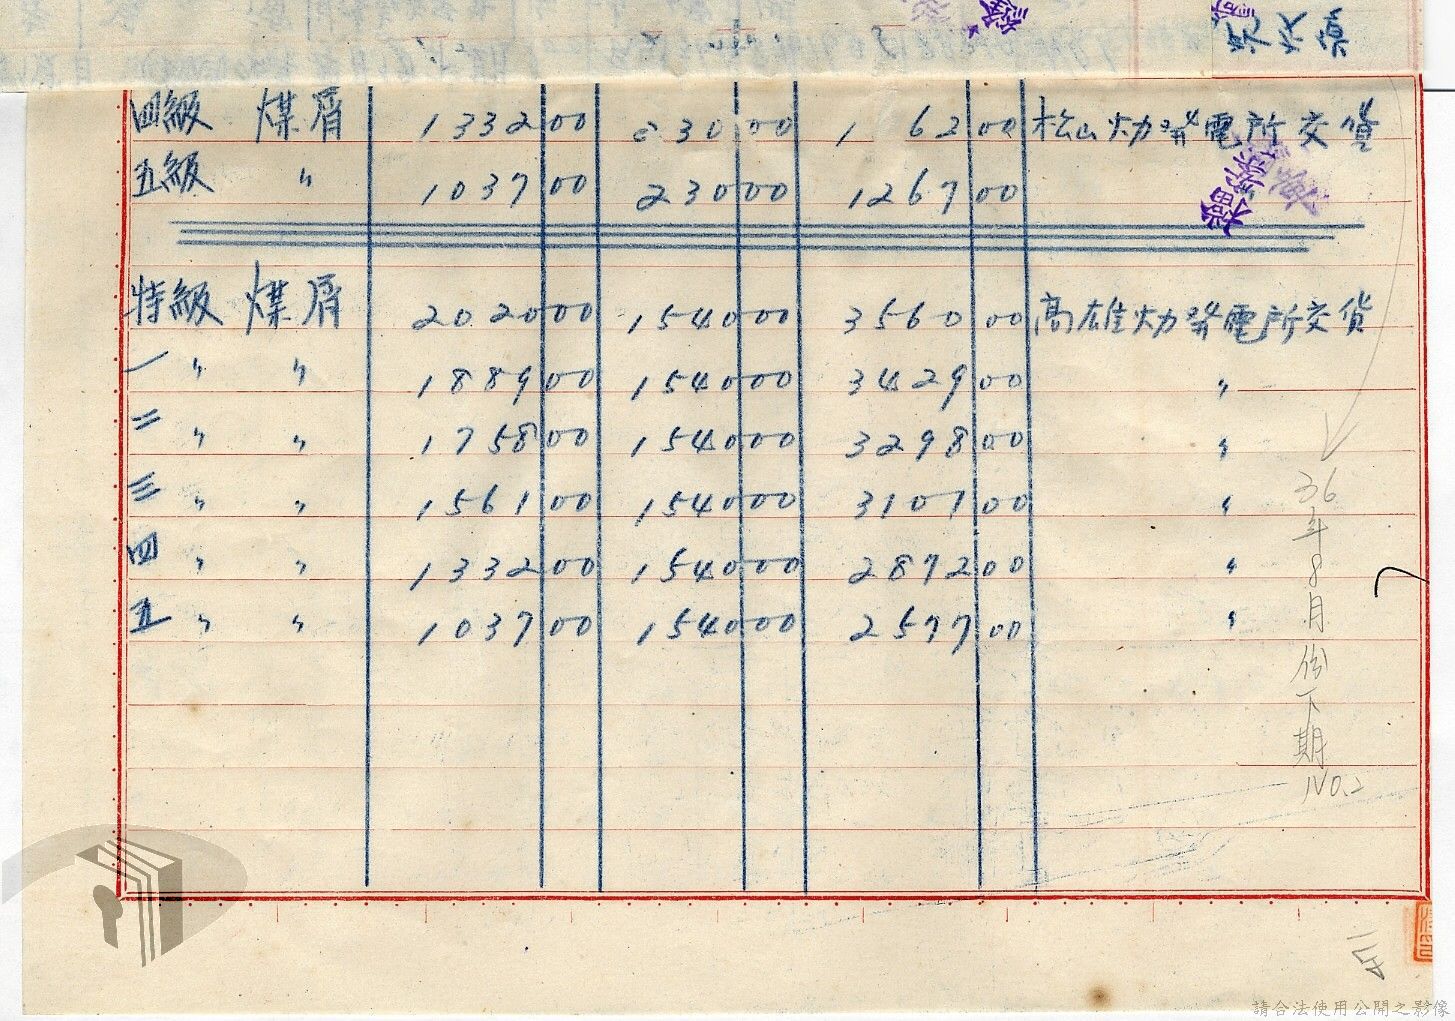 四級 煤屑 1332 00 230 00 1 62 00 松山火力發電所交貨
五級 〃 1037 00 230 00 1267 00
特級 煤屑 2020 00 1540 00 3560 00 高雄火力發電所交貨
一〃 〃 1889 00 1540 00 3429 00 〃
二〃 〃 1758 00 1540 00 3298 00 〃
三〃 〃 1561 00 1540 00 3101 00 〃
四〃 〃 1332 00 1540 00 2872 00 〃
五〃 〃 1037 00 1540 00 2577 00 〃
36年8月份下期NO.2
請合法使用公開之影像